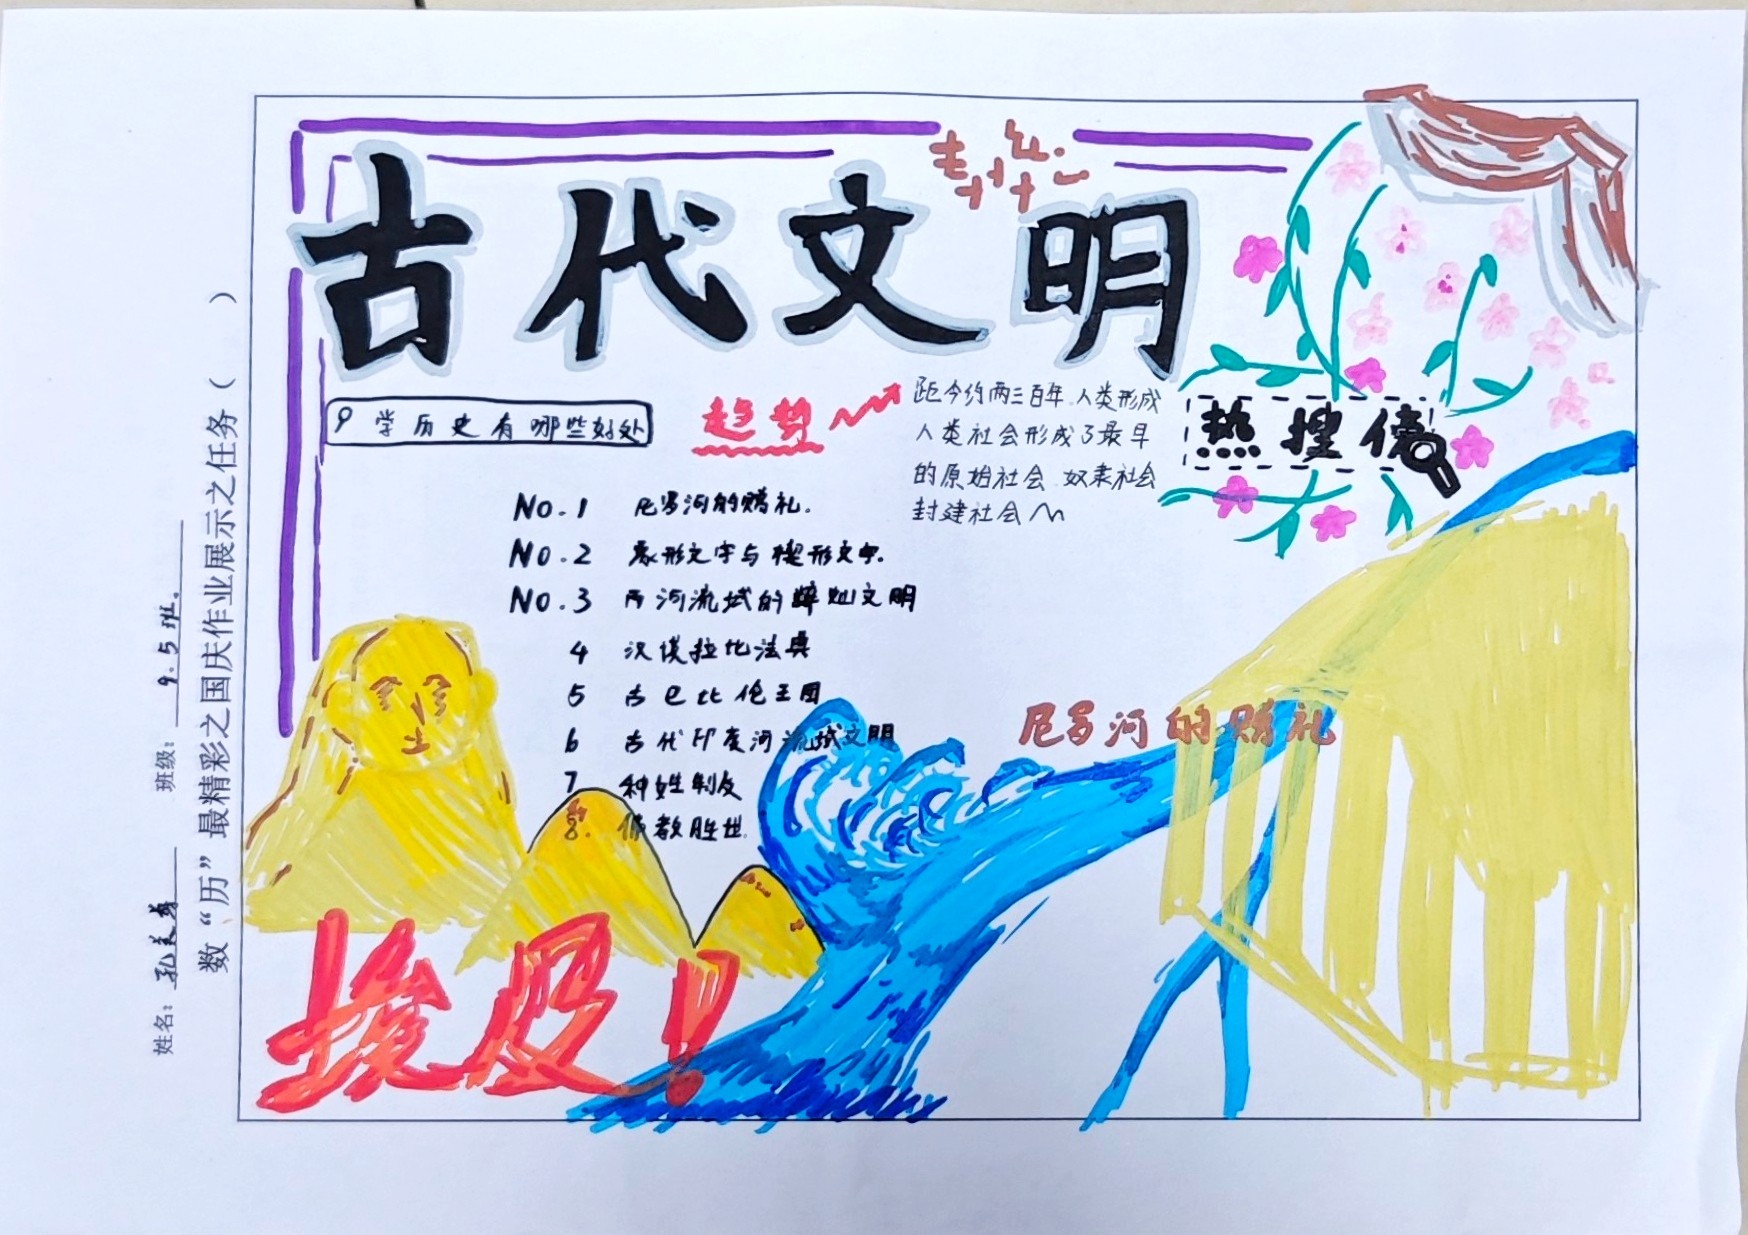 古代文明
学历史有哪些好处
趋势
距今约两三百年.人类形成
人类社会形成了最早
的原始社会 奴隶社会
封建社会
热搜傍
No.1 尼罗河的赠礼.
No.2 象形文字与楔形文字.
No.3 两河流域的辉灿文明
4 汉谟拉比法典
5 古巴比伦王国
6 古代印度河流域文明
7 种姓制度
8. 佛教胜世.
尼罗河的赠礼
埃及!
数“历”最精彩之国庆作业展示之任务（ ）
姓名： 孔美 班级： 9.5班.